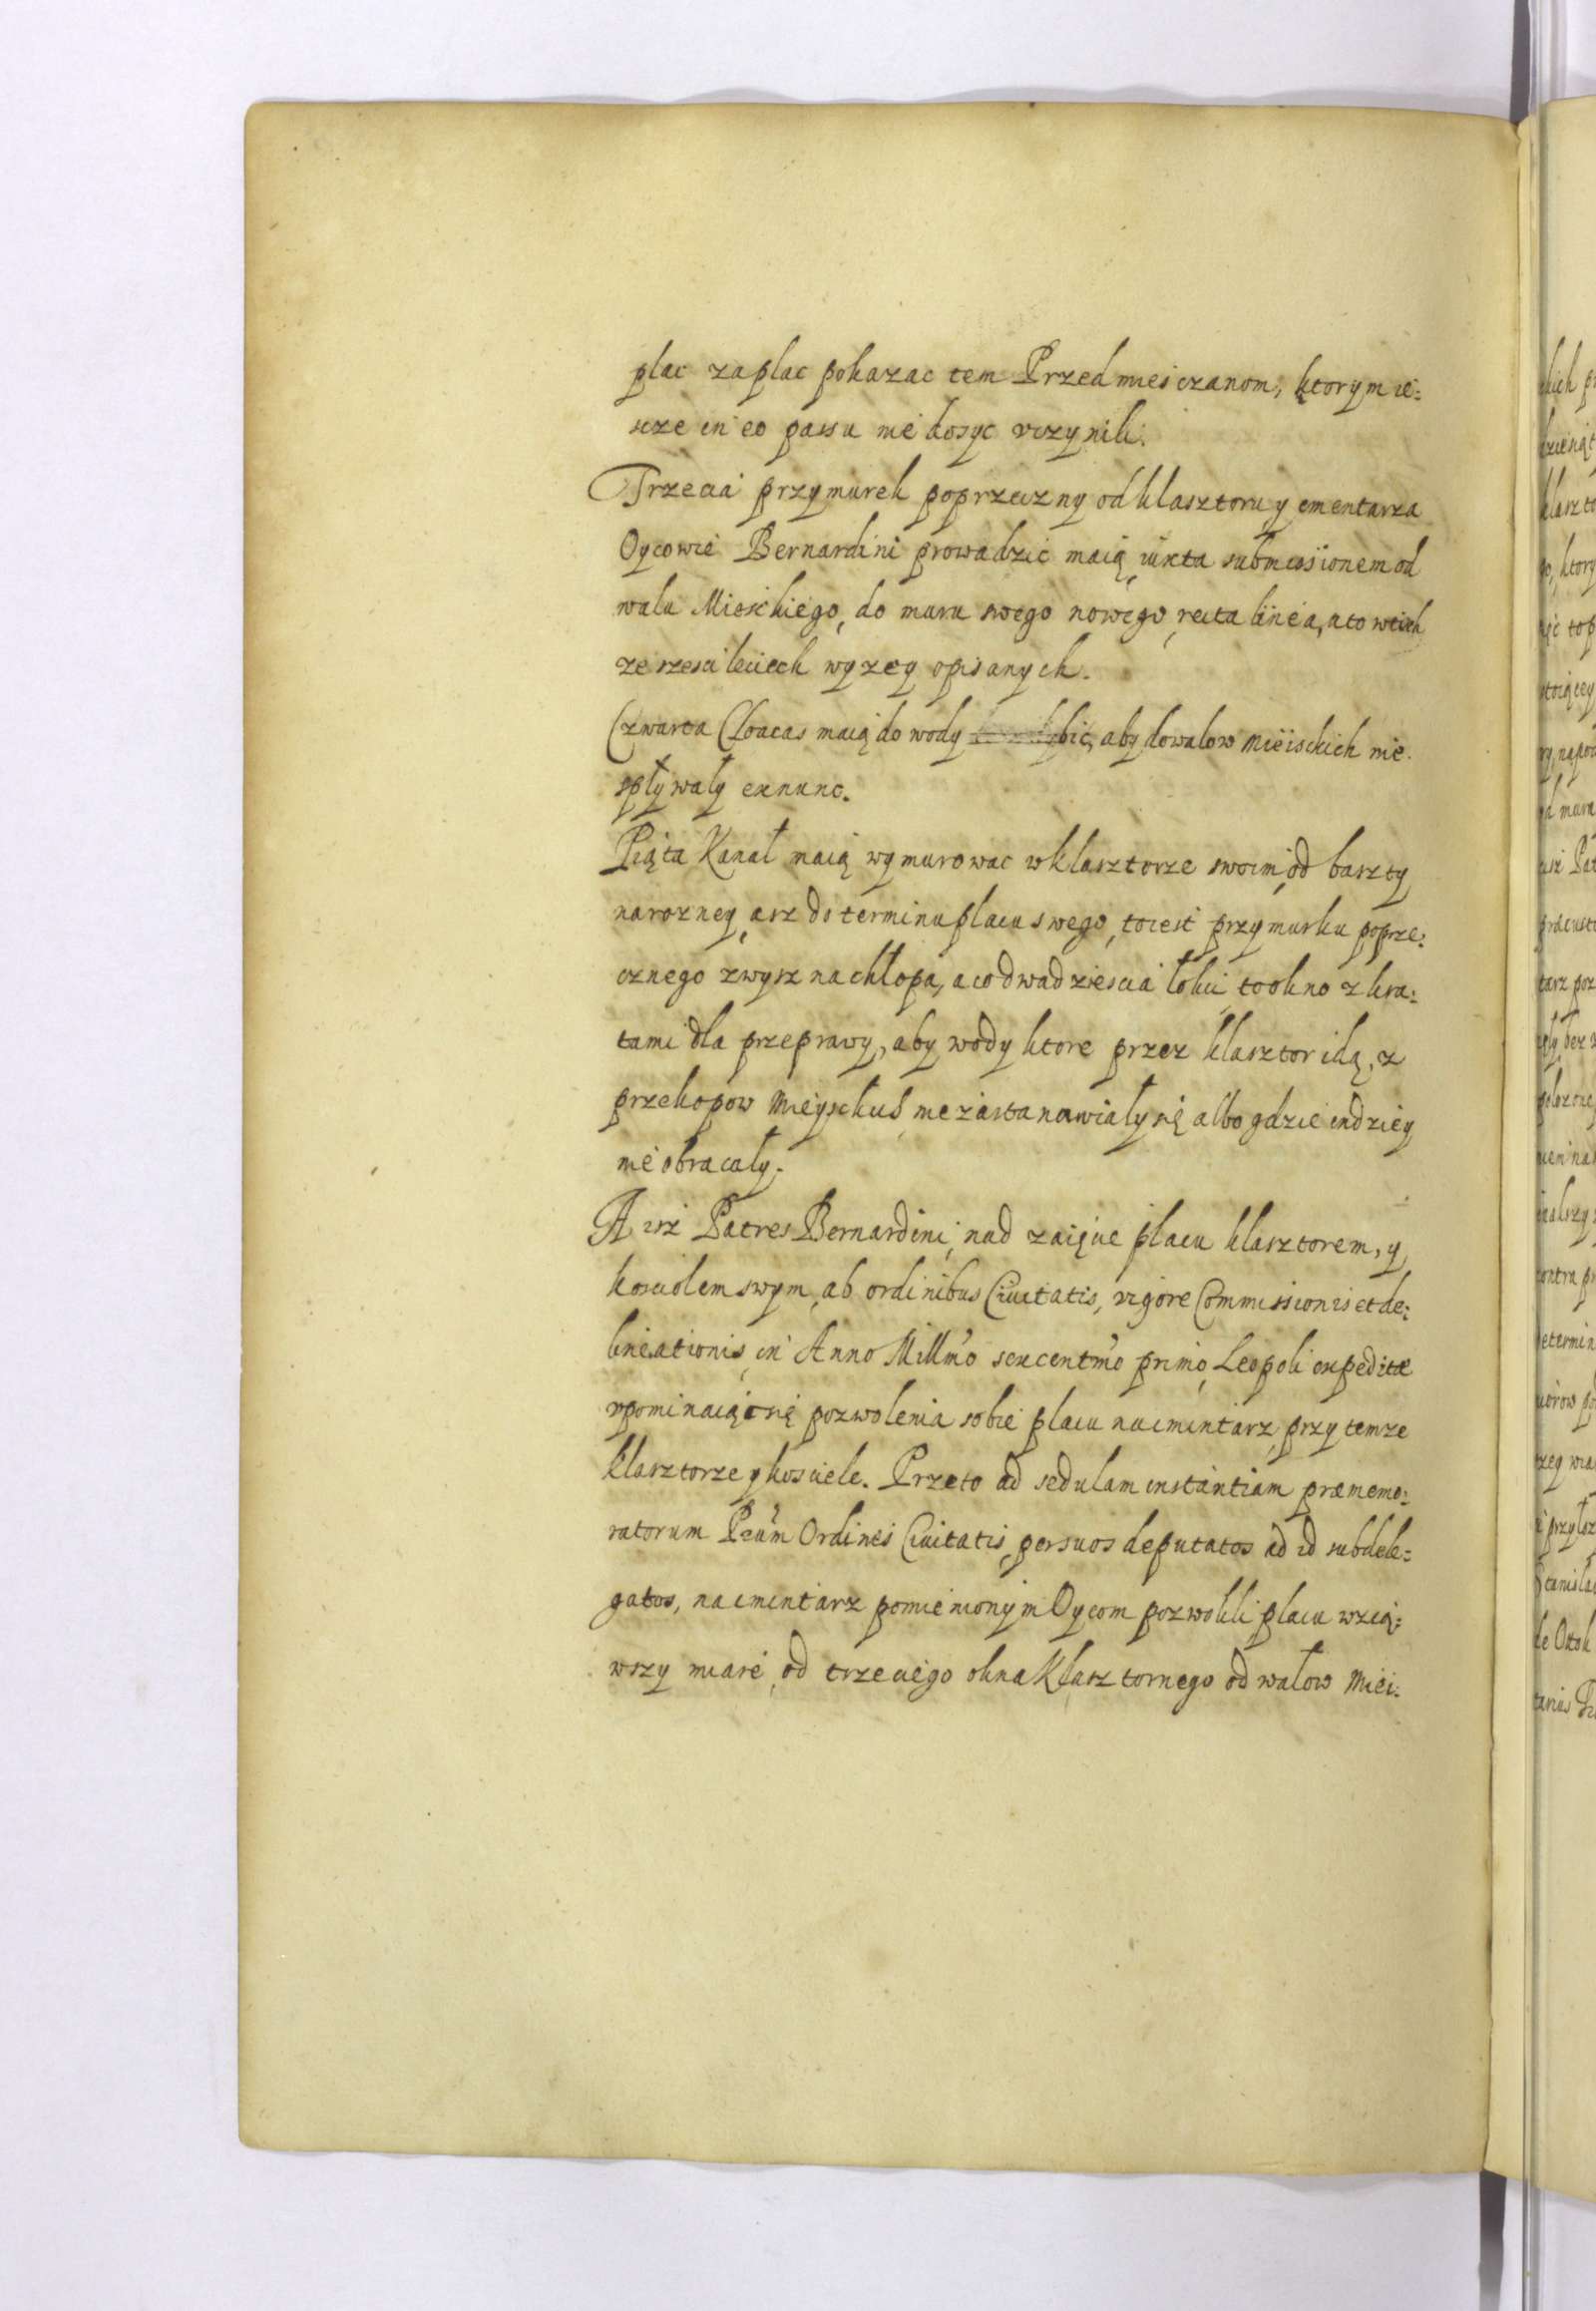 plac za plac pokazac tem Przedmiesczanom, ktorym ie:
scze in eo passu nie dosyc vczynili.
Trzecia przymurek poprzeczny od klasztoru y cmentarza
Oycowie Bernardini prowadzić maią iuxta submissionem od
walu Mieskiego, do muru swego nowego, recta linea, a to wtich
ze szesci leciech wyzey opisanych.
Czwarta Cloacas maią do wody bić, aby dowalow mieisckich nie
spływały exnunc.
Piąta Kanał maią wymurowac w klasztorze swoim, od baszty
narozney, asz do terminu placu swego, to iest przymurku poprze:
cznego zwysz na chłopa, a co dwadziescia łokci to okno z kra:
tami dla przeprawy, aby wody ktore przez klasztor idą, z
przekopow nie zastanawiały się albo gdzie indziey
nie obracały.
A isz Patres Bernardini, nad zaięcie placu klasztorem, y
kosciolem swym, ab ordinibus Ciuitatis, vigore Commissionis et de:
lineationis, in Anno Millmo sexcentmo primo, Leopoli expeditæ
vpominaiąc się pozwolenia sobie placu na cmintarz, przy temze
klasztorze y kosciele. Przeto ad sedulam instantiam præmemo:
ratorum Prum Ordines Ciuitatis, per suos deputatos ad id subdele:
gatos, na cmintarz pomienionym Oycom pozwolili, placu wzią:
wszy miare, od trzeciego okna Klasztornego od wałow Miei:
kich
klaszto
ktory
mura